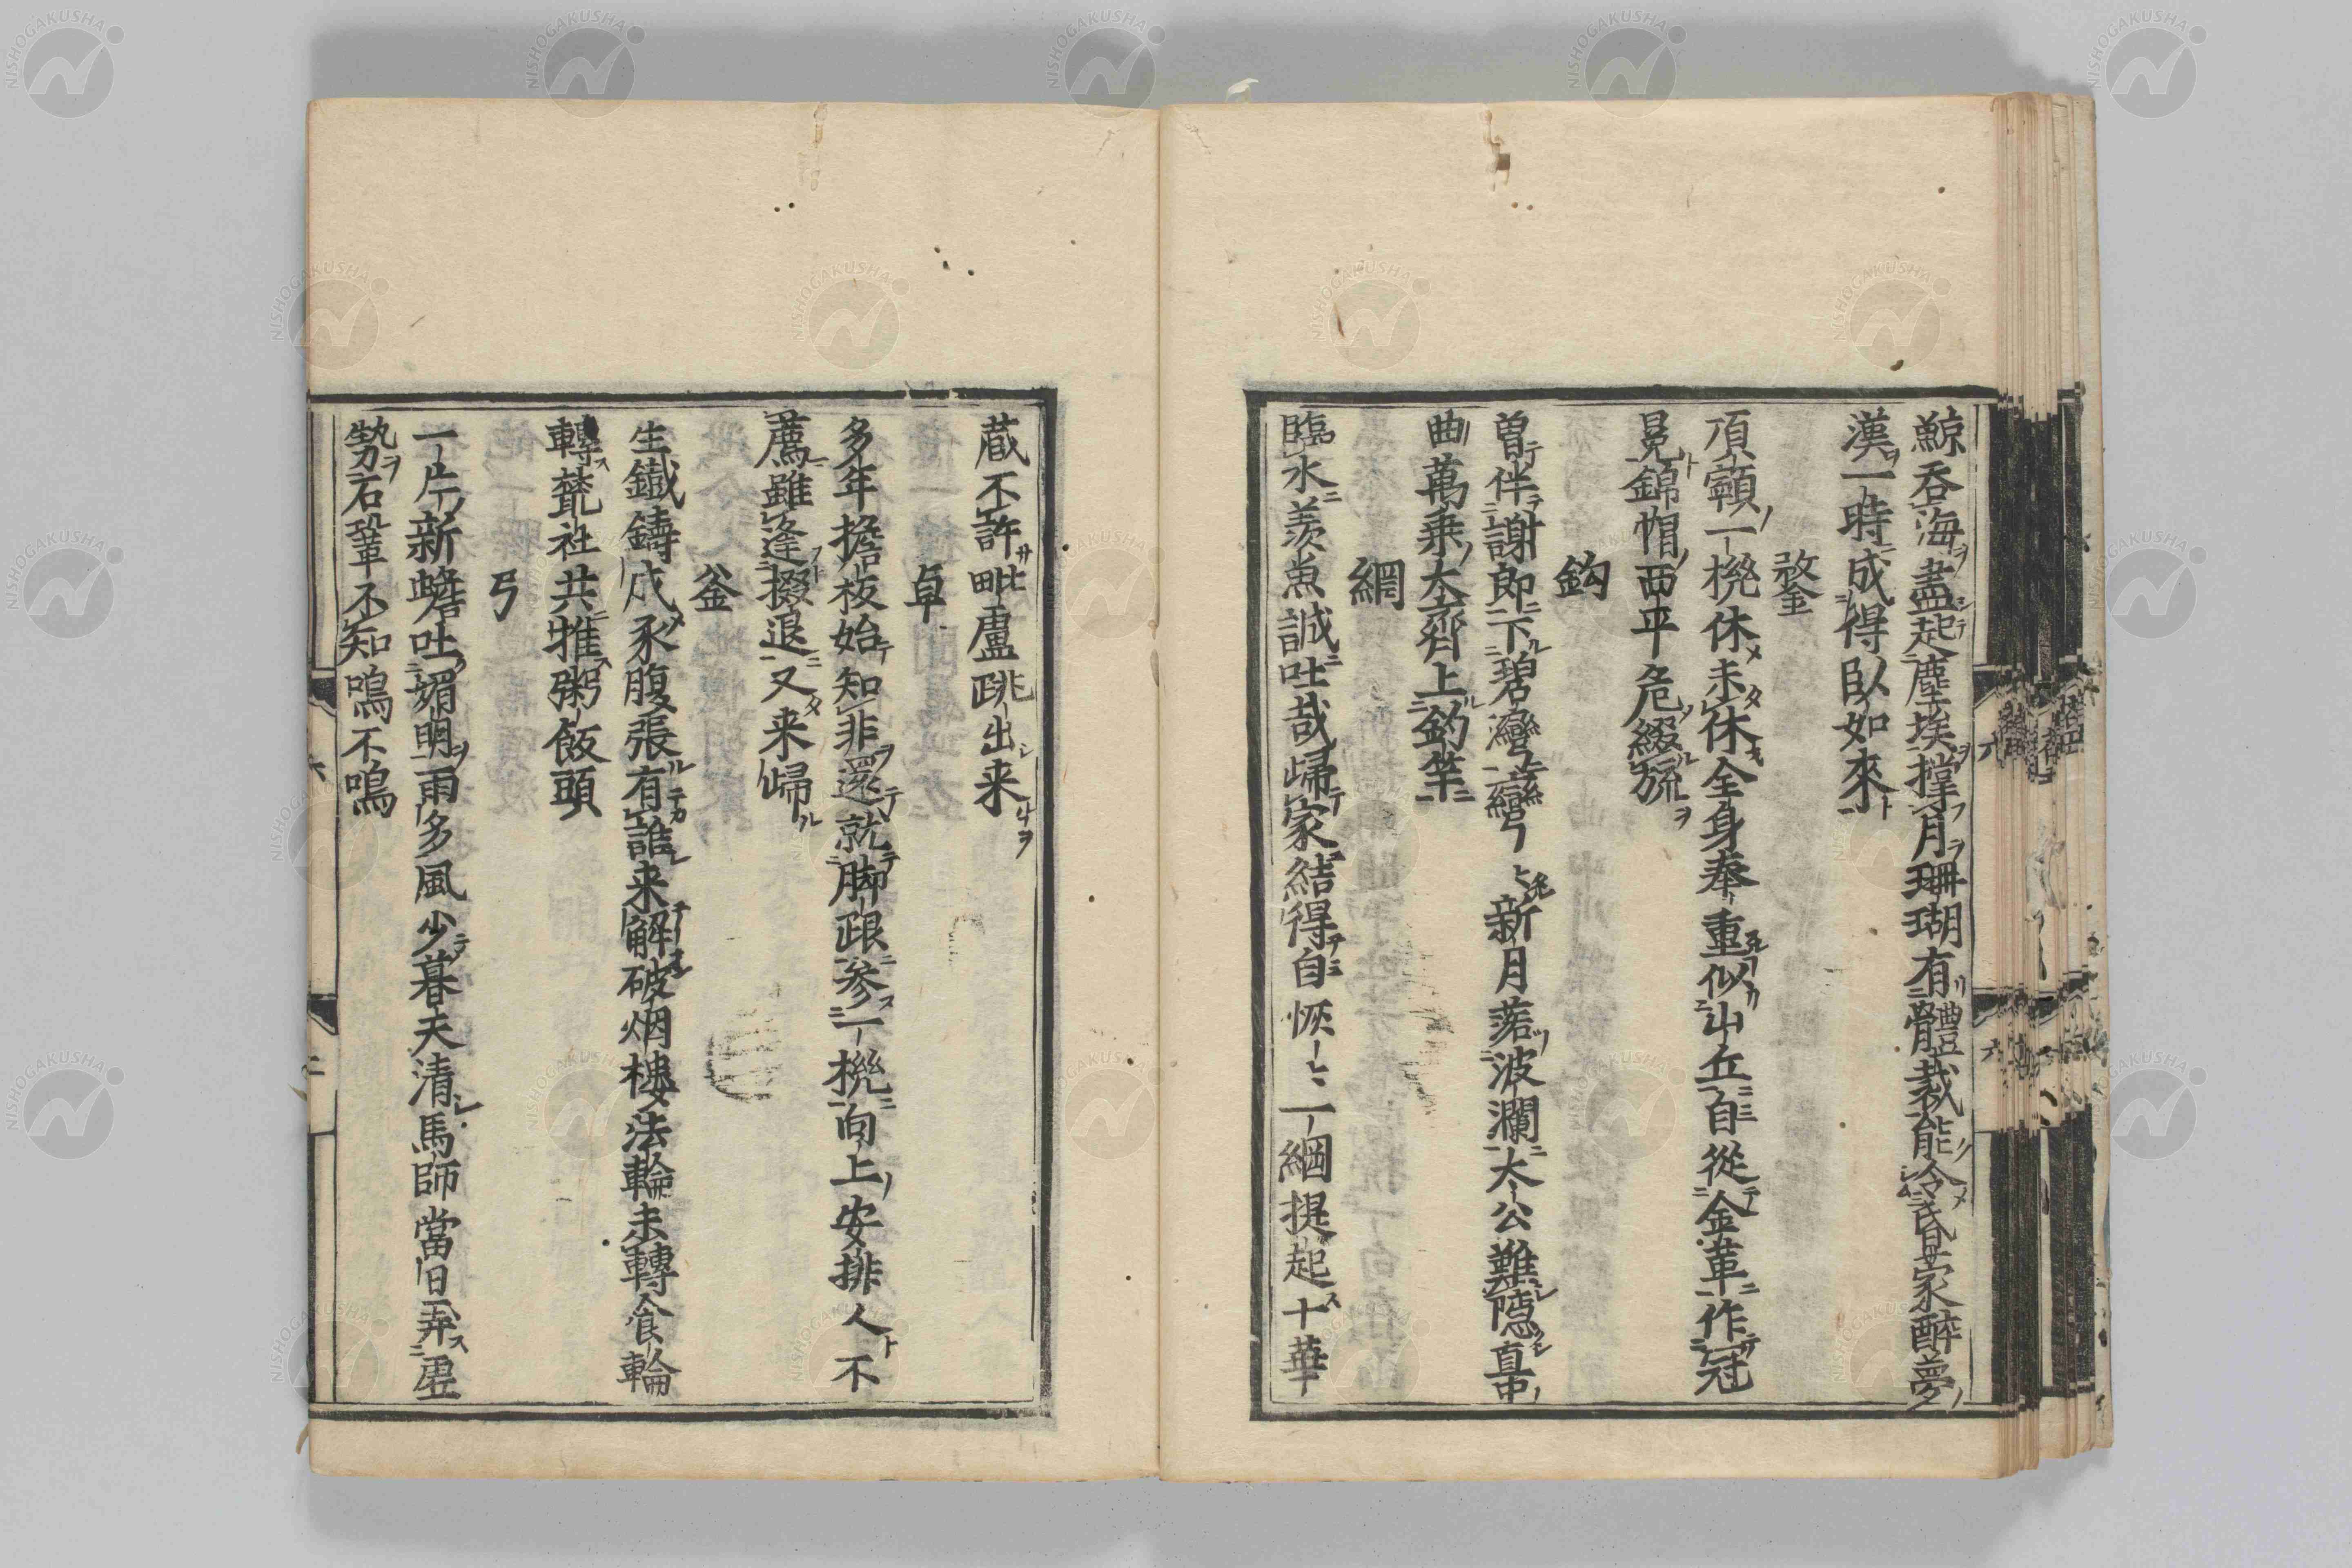 鯨呑海盡起塵埃撑月珊瑚有體裁能令昏家醉夢
漢一時成得臥如來
鍪
項顊一機休未休全身奉重似山丘自從金革作冠
冕錦帽西平危綴旒
鈎
曽伴謝郎下碧灣彎〻新月落波瀾太公難隠直中
曲萬乗太齊上釣竿
網
臨水羨魚誠吐哉歸家結得自恢〻一綱提起十華
蔵不許毗盧跳出来
卓
多年擔板始知非還就脚跟参一機向上安排人不
薦雖逢掇退又来歸
釜
生鐵鑄成豕腹張有誰来解破烟樓法輪未轉食輪
轉甃社共推粥飯頭
弓
一片新蟾吐媚明雨多風少暮天清馬師當日弄虚
勢石鞏不知鳴不鳴